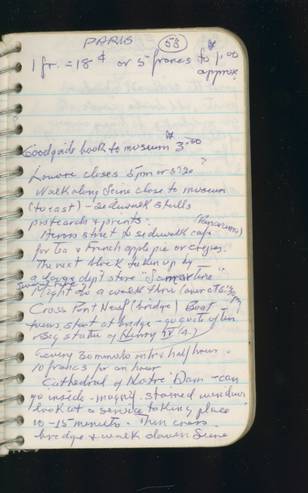 PARIS 58
1 fr. = 18¢ or 5 francs to $1.00
approx
Good guide book to museum $3.00
Louvre closes 5 pm or 5:30 ?
Walk along Seine close to museum
(to east) - sidewalk stalls
postcards & prints.
Across street to sidewalk cafe
for tea & French apple pie or crepes.
The next block taken up by
a large dep't store
Might do a walk thru
Cross Pont Neuf (bridge) Boat
tours start at bridge - go out often
Big statue of Henry IV (4.)
Every 30 minutes into half hour.
10 francs for an hour
Cathedral of Notre Dam - can
go inside - magnif. stained windows
look at a service taking place
10-15 minutes. Then cross
bridge & walk down Seine